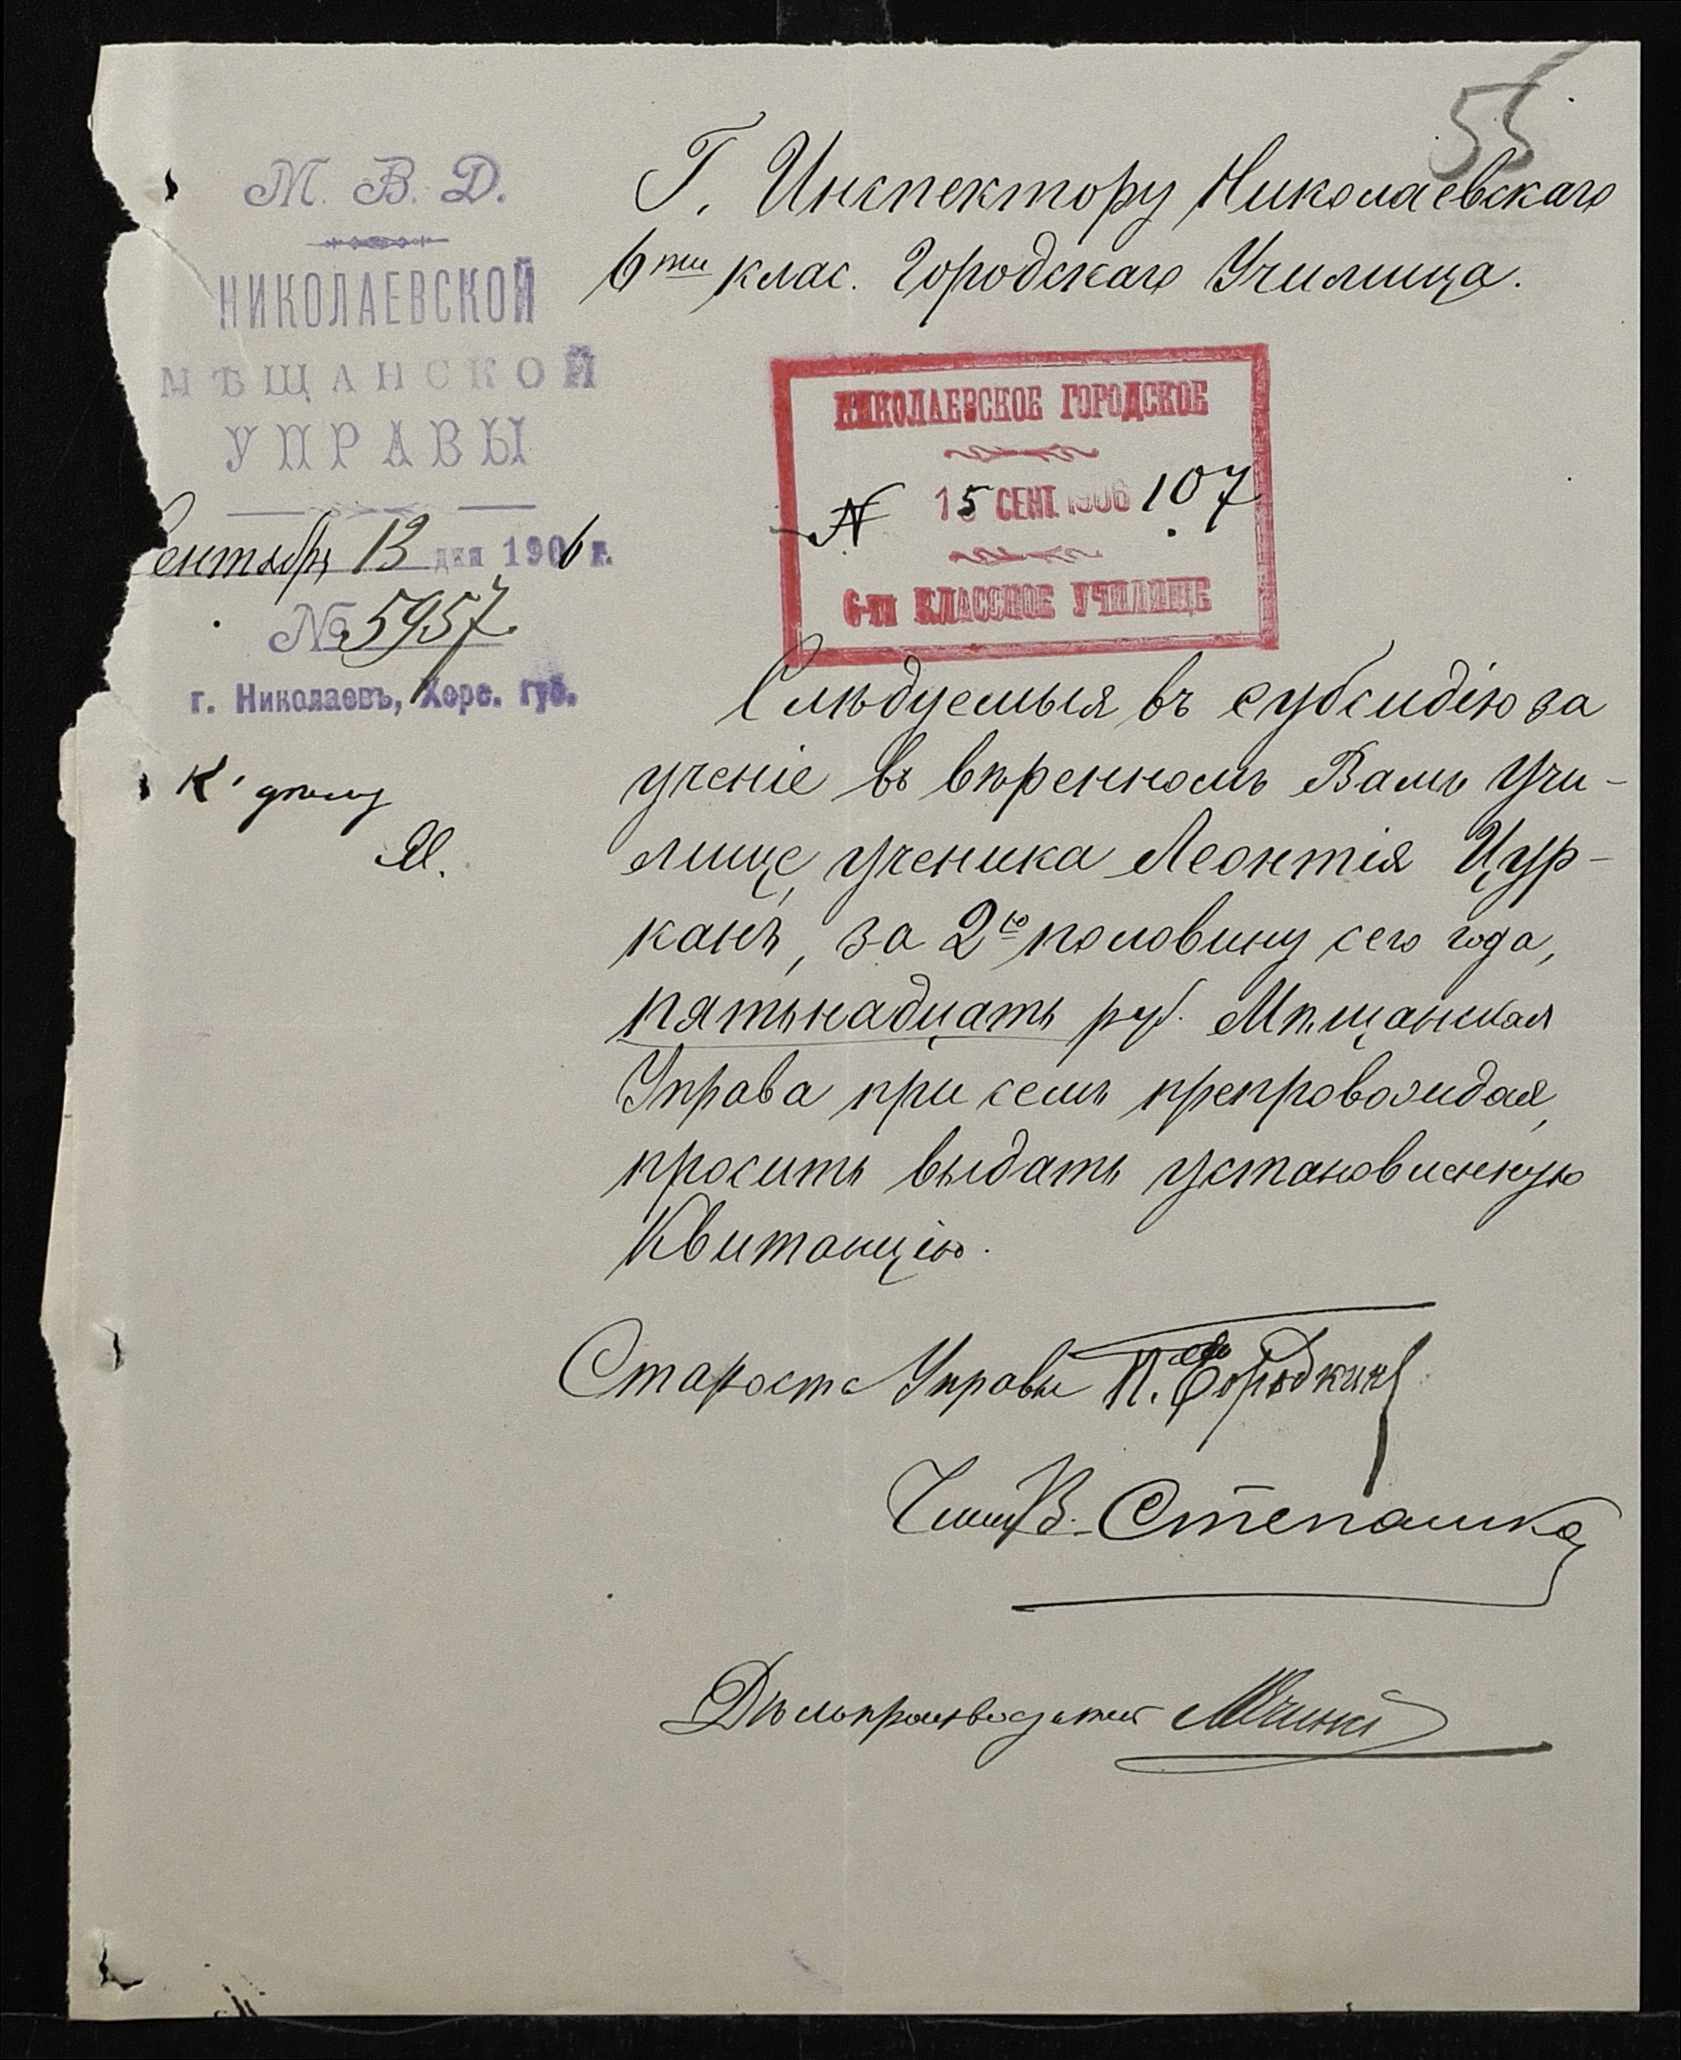 55
М. В. Д.
НИКОЛАЕВСКОЙ
МѢЩАНСКОЙ
УПРАВЫ
Сентября 13 дня 1906 г.
№ 5957
г. Николаевъ, Херс. губ.
К' дѣлу
Г. Инспектору Николаевскаго
6ти клас. Городскаго Училища.
НИКОЛАЕВСКОЕ ГОРОДСКОЕ
N 15 СЕНТ. 1906 107
6-ти КЛАССНОЕ УЧИЛИЩЕ
Слѣдуемыя въ субсидію за
ученіе въ ввѣренномъ Вамъ Учи-
лище, ученика Леонтія Цур-
канъ, за 2ю половину сего года,
пятьнадцать руб. Мѣщанская
Управа при семъ препровождая,
просить выдать установленную
Квитанцію.
Староста Управы П.
В. Степашко
Дѣлопроизводитель